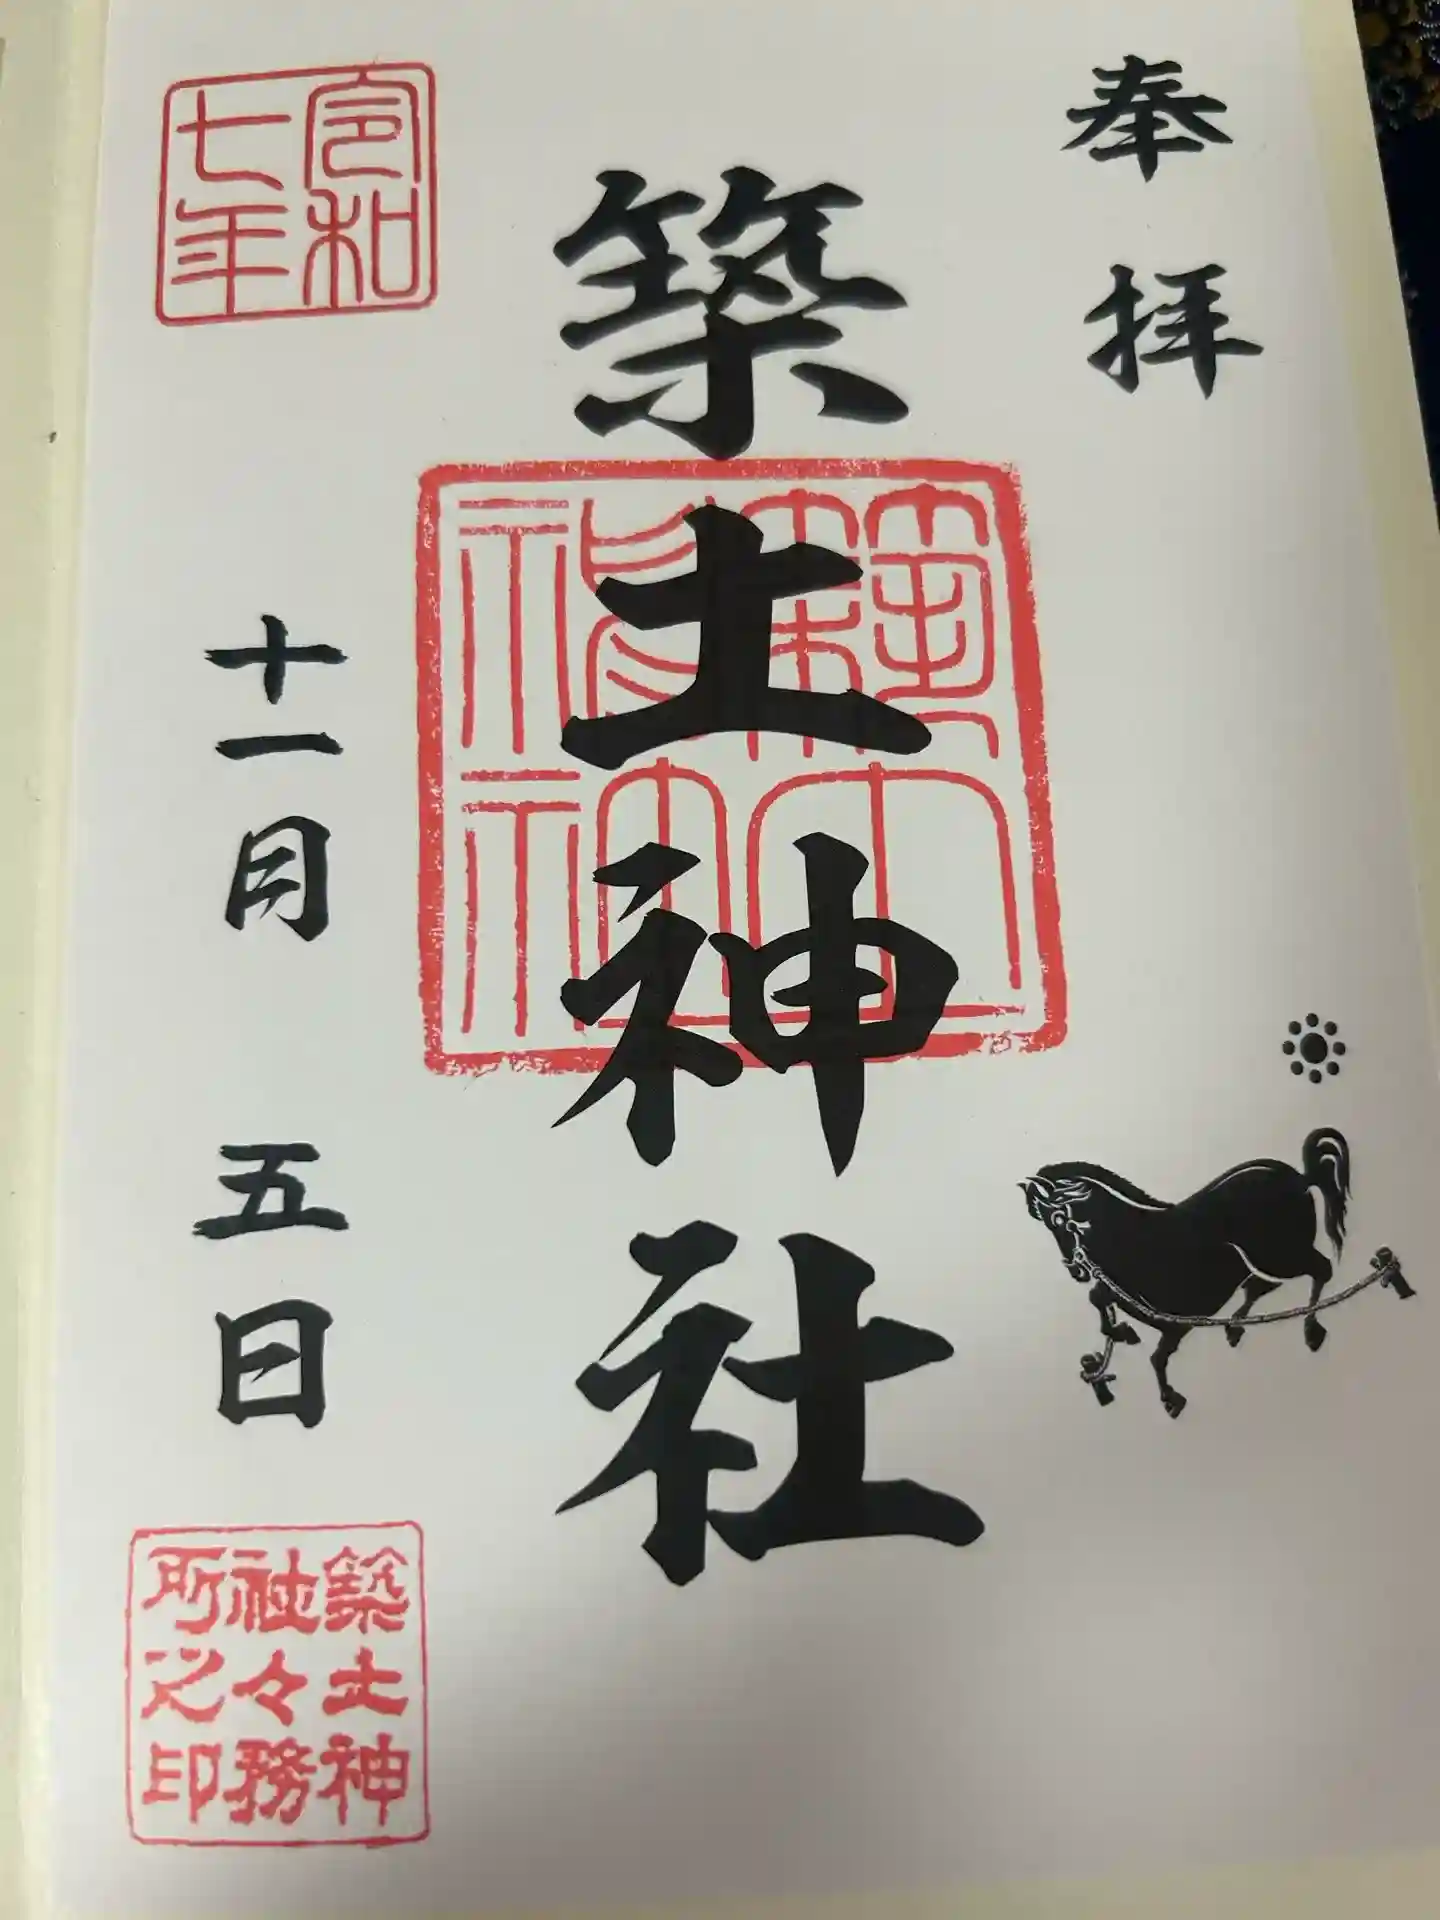 奉拝
築土神社
令和
七年
十一月 五日
築土神
社々務
所之印